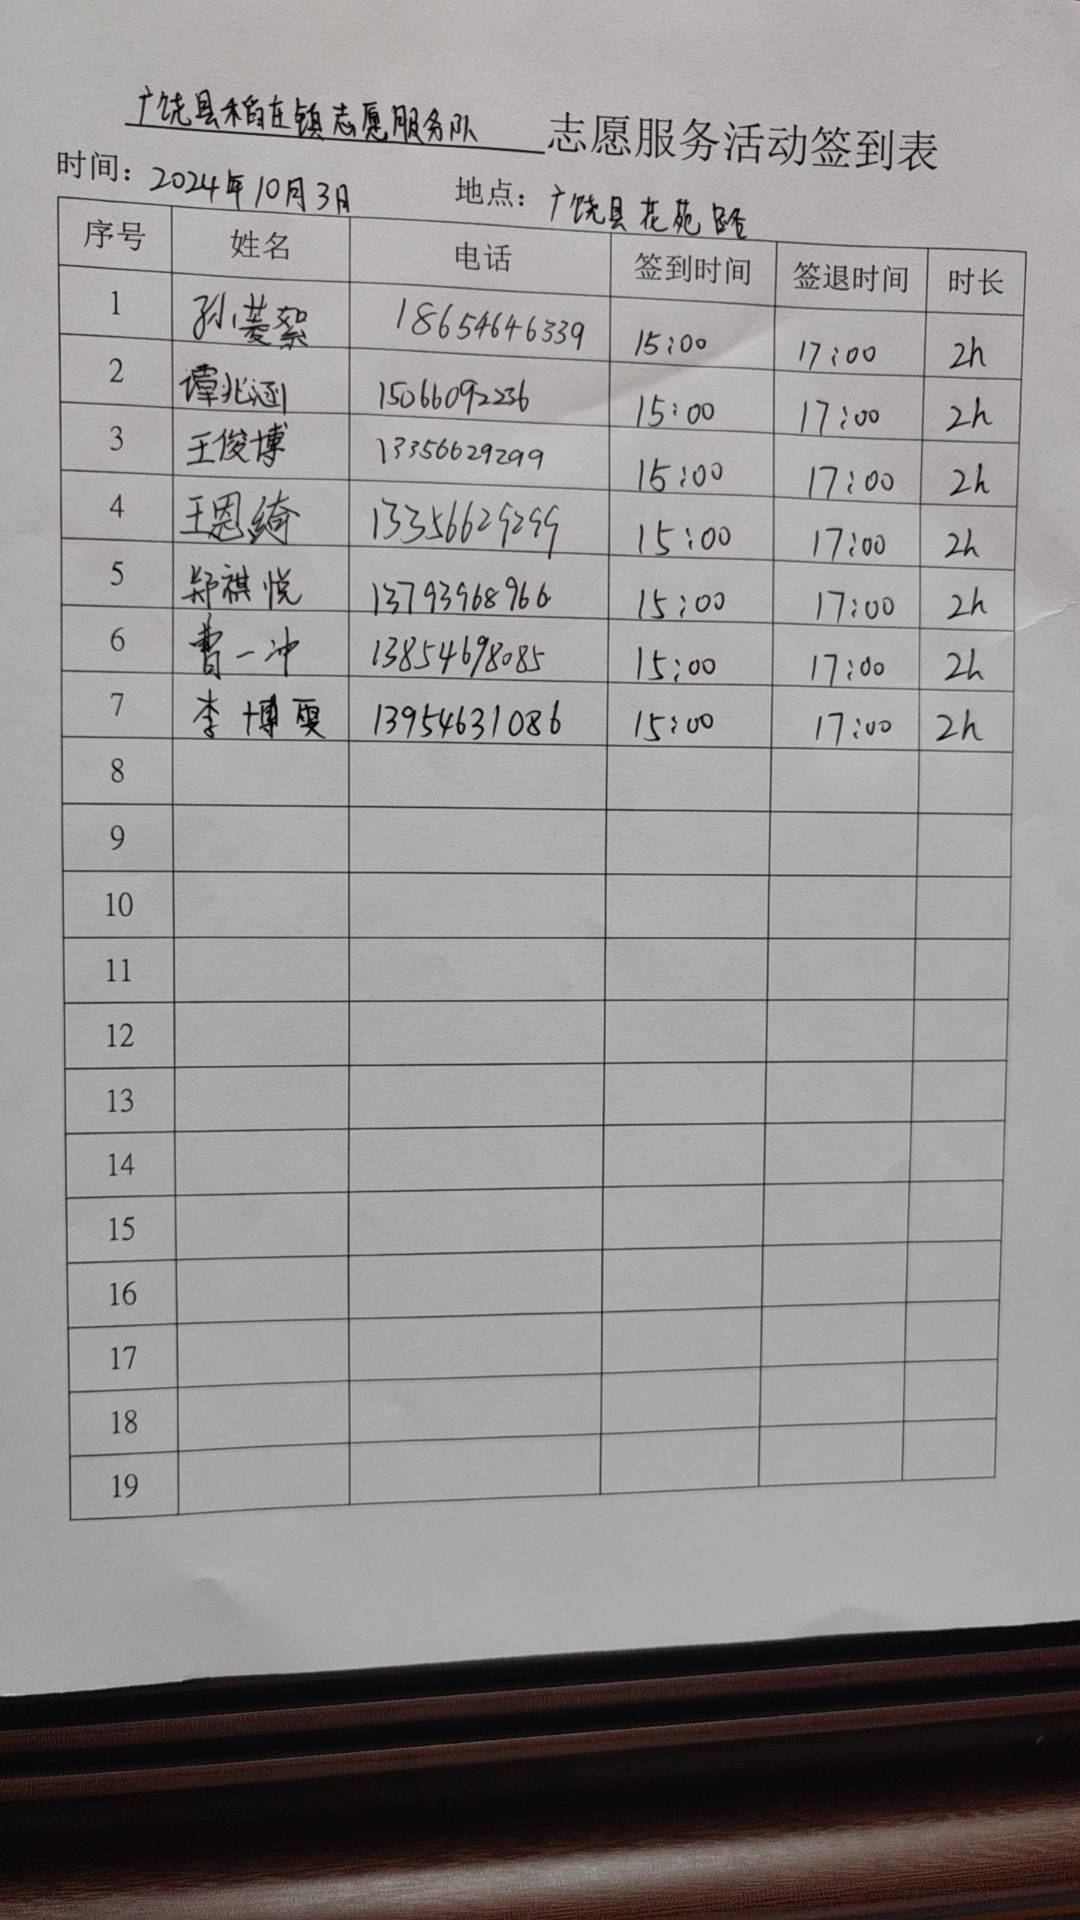 广饶县稻庄镇志愿服务队 志愿服务活动签到表
时间：2024年10月3日 地点：广饶县花苑路
序号 姓名 电话 签到时间 签退时间 时长
1 孙菱絮 18654646339 15:00 17:00 2h
2 谭兆涵 15066092236 15:00 17:00 2h
3 王俊博 13356629299 15:00 17:00 2h
4 王恩绮 13356629299 15:00 17:00 2h
5 郑祺悦 13793968966 15:00 17:00 2h
6 曹一冲 13854698085 15:00 17:00 2h
7 李博雯 13954631086 15:00 17:00 2h
8
9
10
11
12
13
14
15
16
17
18
19